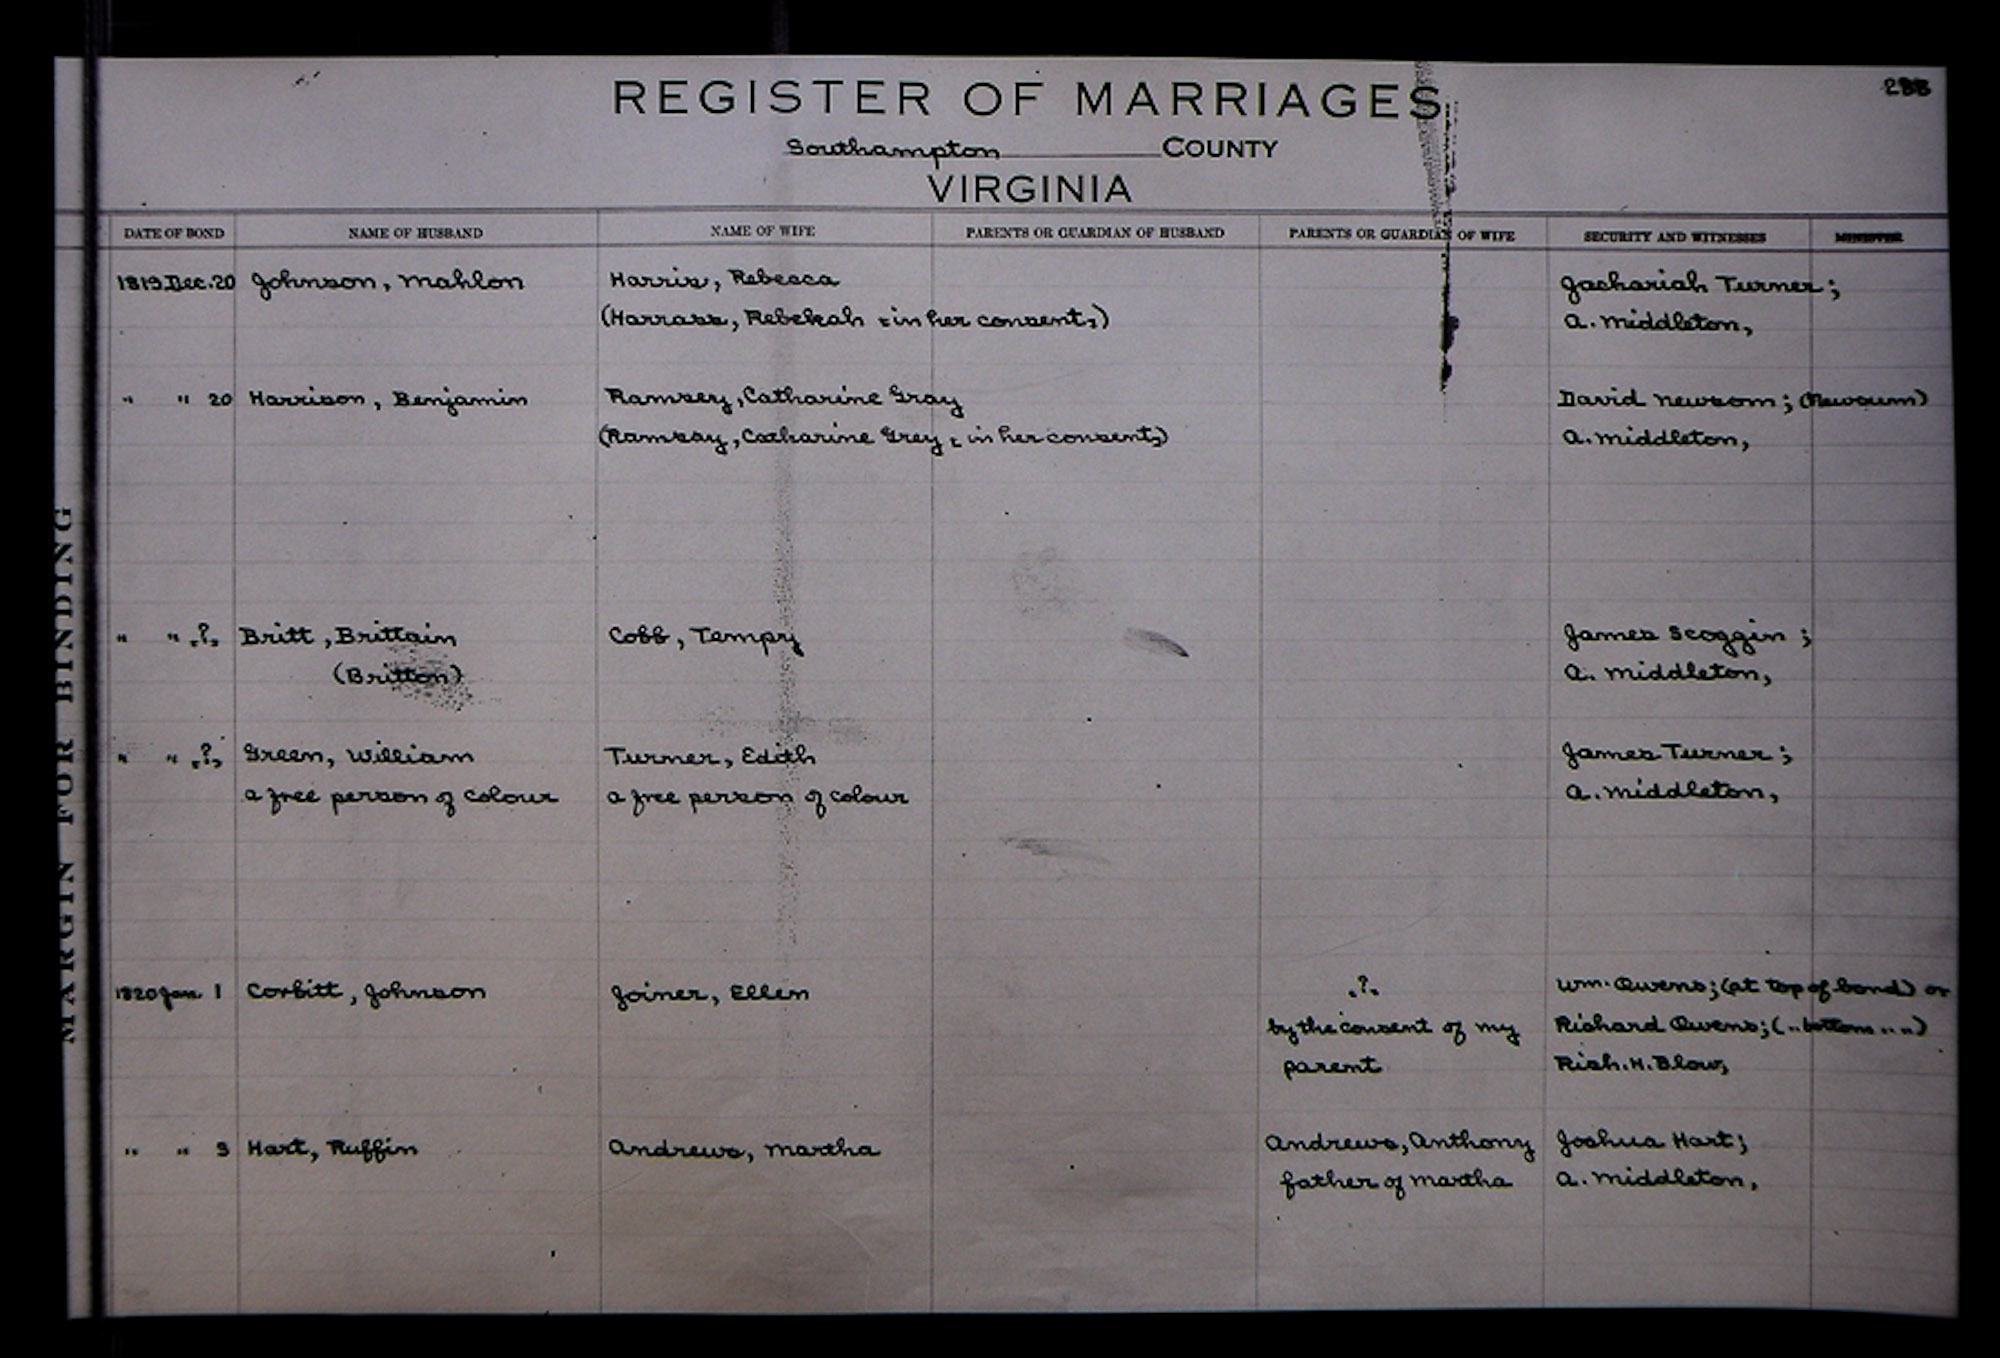 288
REGISTER OF MARRIAGES
Southampton COUNTY
VIRGINIA
DATE OF BOND NAME OF HUSBAND NAME OF WIFE PARENTS OR GUARDIAN OF HUSBAND PARENTS OR GUARDIAN OF WIFE SECURITY AND WITNESSES MINISTER
1819 Dec. 20 Johnson, Mahlon Harris, Rebecca Zachariah Turner;
(Harrass, Rebekah - in her consent,) A. Middleton,
" " 20 Harrison, Benjamin Ramsey, Catharine Gray David Newsom; (Newsum)
(Ramsay, Catharine Grey, in her consent,) A. Middleton,
" " .?. Britt, Brittain Cobb, Tempy James Scoggin;
(Britton) A. Middleton,
" " .?. Green, William Turner, Edith James Turner;
a free person of colour a free person of colour A. Middleton,
1820 Jan. 1 Corbitt, Johnson Joiner, Ellen .?. Wm. Owens; (at top of bond) or
by the consent of my Richard Owens; (" bottom " ")
parent Rich. H. Blow,
" " 3 Hart, Ruffin Andrews, Martha Andrews, Anthony Joshua Hart;
father of Martha A. Middleton,
MARGIN FOR BINDING